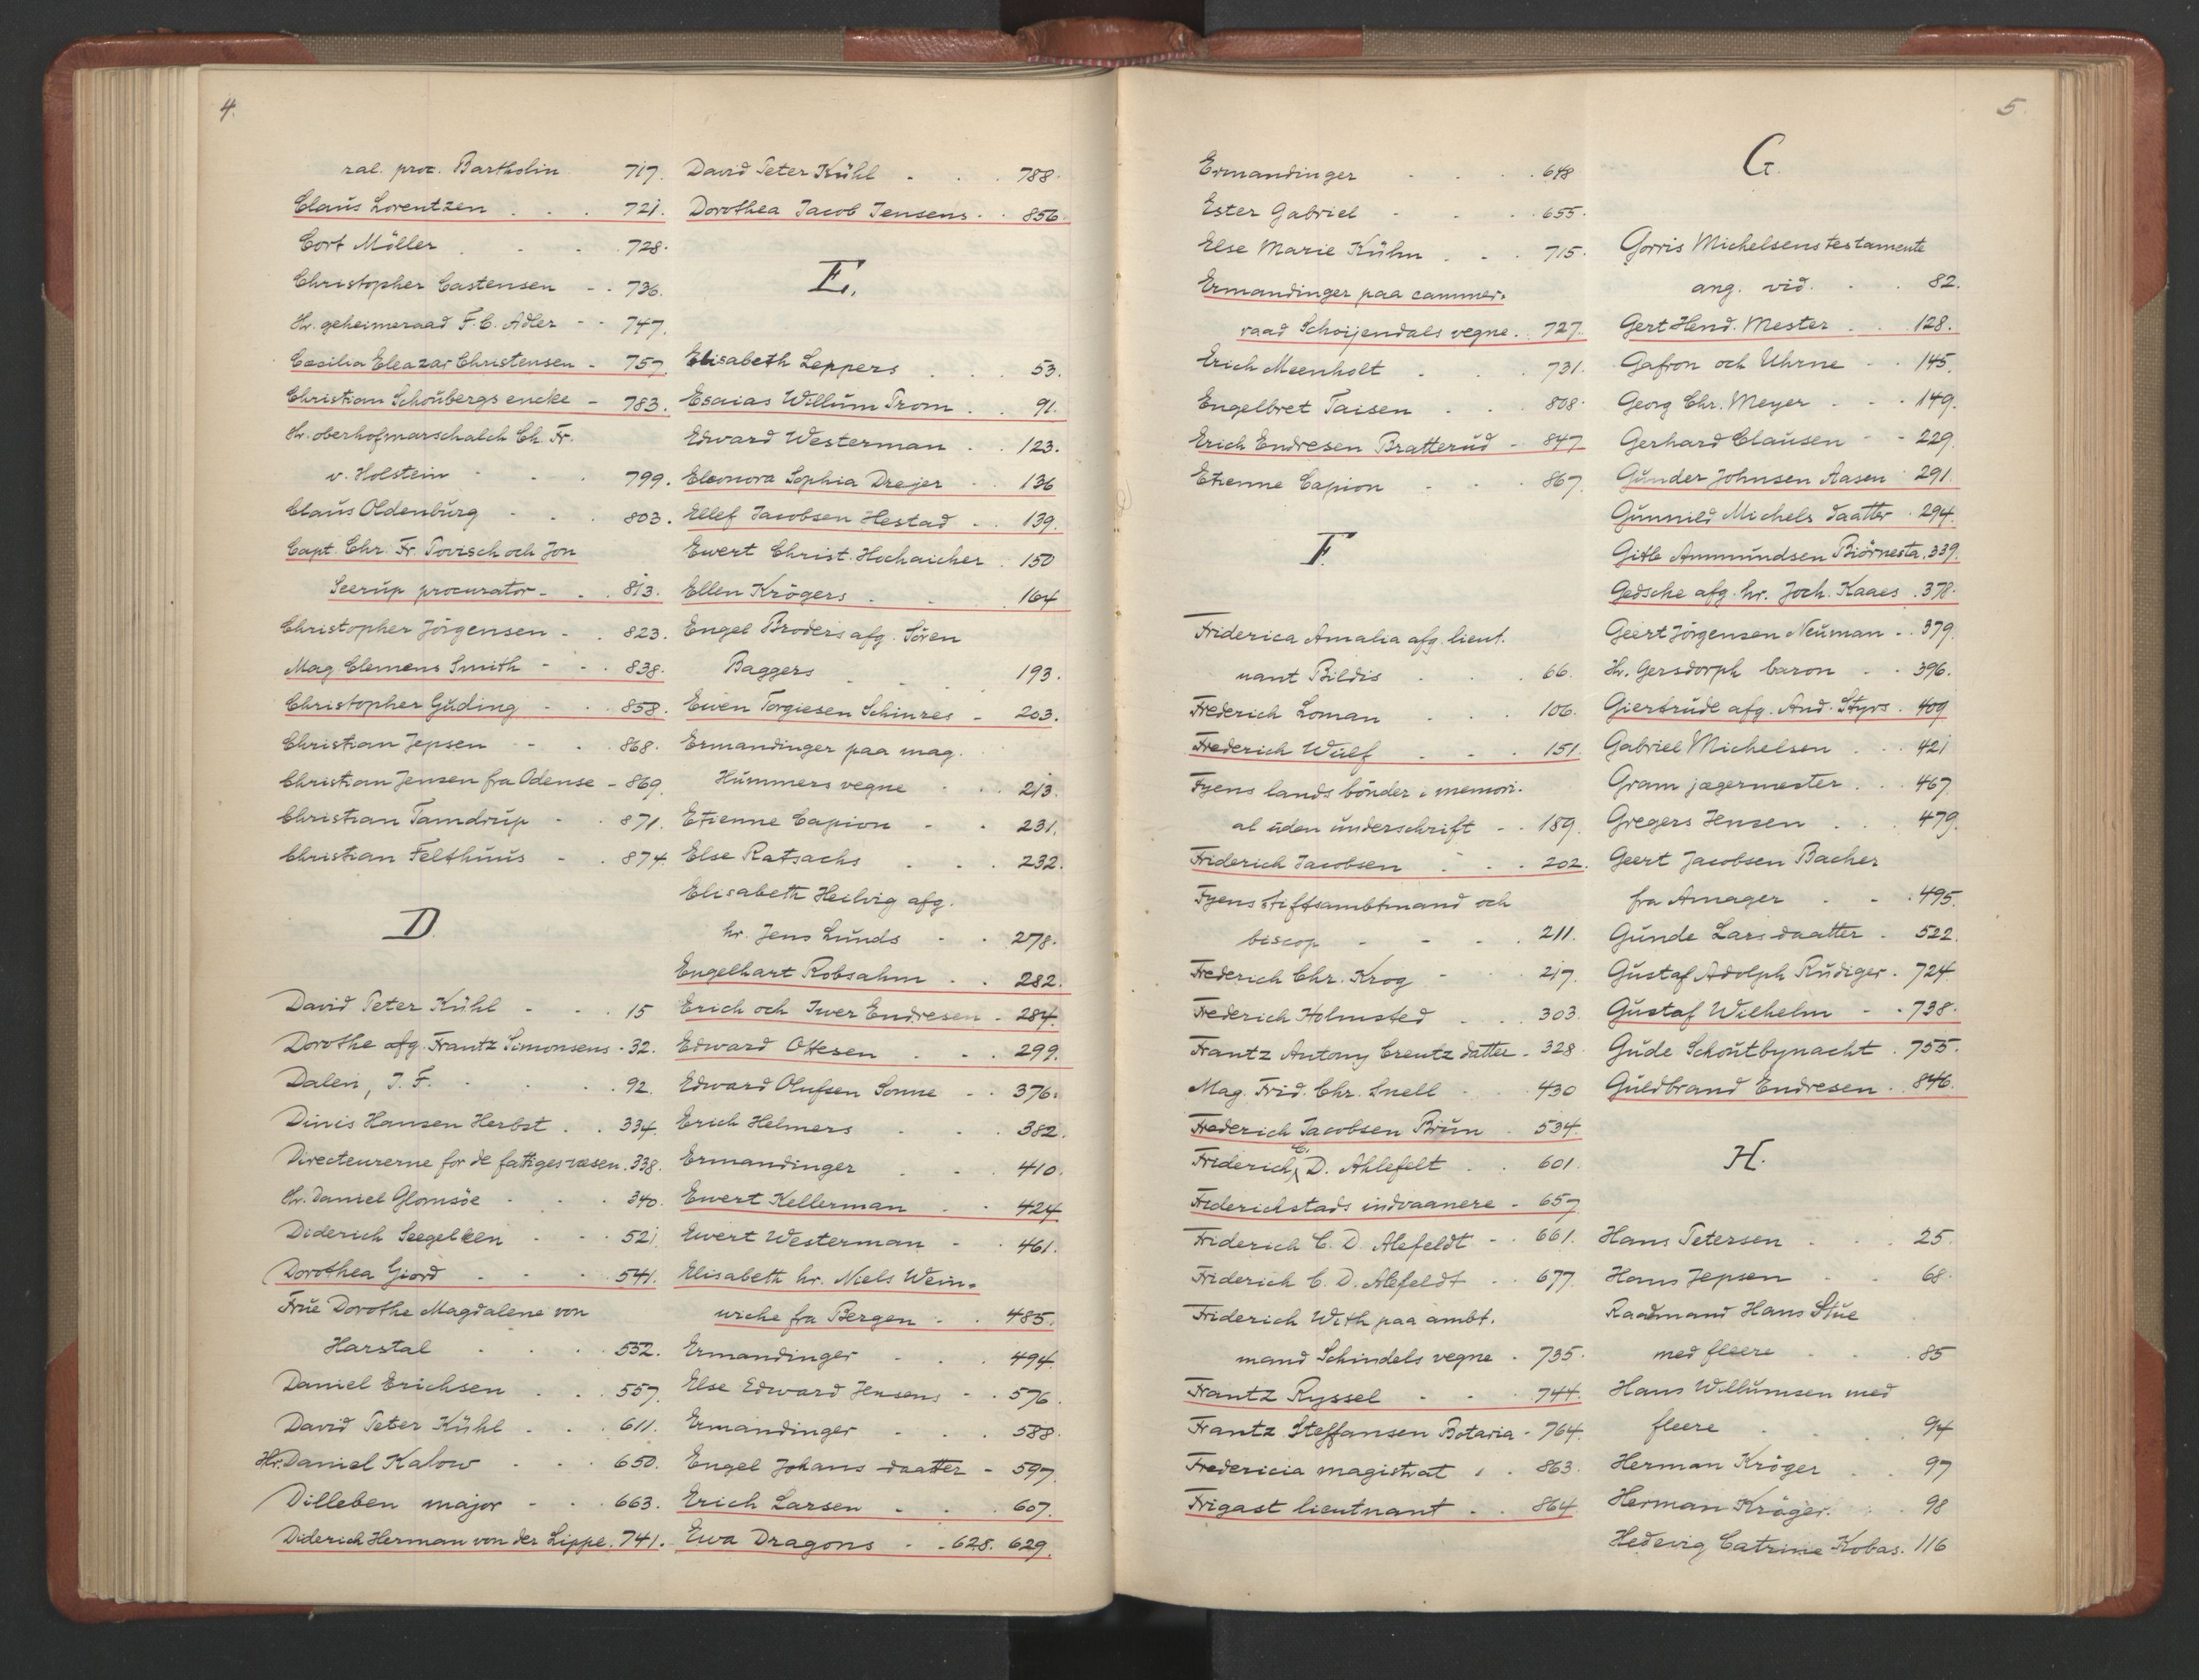 4.
ral. proc. Bartholin 717.
Claus Lorentzen . . . 721.
Cort Möller . . . 728.
Christopher Castensen - . 736.
Hr. geheimeraad F. C. Adler - - 747.
Cæcilia Eleazar Christensen - 757.
Christian Schoubergs encke - 783.
Hr. oberhofmarschalch Ch. Fr.
v. Holstein - . . 799.
Claus Oldenburg - . . 803.
Capt. Chr. Fr. Povisch och Jon
Seerup procurator - . . 813.
Christopher Jörgensen - . 823.
Mag. Clemens Smith - - . 838.
Christopher Guding - . . 858.
Christian Jepsen - - . 868.
Christian Jensen fra Odense - 869.
Christian Tamdrup - . 871.
Christian Felthuus - . 874.
D.
David Peter Kühl - - . 15
Dorothe afg. Frantz Simonsens - 32.
Dalen, J. F. . . . 92.
Dinis Hansen Herbst . . 334.
Directeurerne for de fattiges væsen. 338.
Hr. Daniel Glomsöe - - . 340.
Diderich Seegelken - - . 521.
Dorothea Giord - - . 541.
Frue Dorothe Magdalene von
Harstal . . . 552.
Daniel Erichsen . . . 557.
David Peter Kühl . . . 611.
Hr. Daniel Kalow - . . 650.
Dilleben major - - . 663.
Diderich Herman von der Lippe. 741.
David Peter Kühl - . . 788.
Dorothea Jacob Jensens - . 856.
E.
Elisabeth Leppers . . . 53.
Esaias Willum Trom . . 91.
Edvard Westerman . . 123.
Eleonora Sophia Drejer - . 136
Ellef Jacobsen Hestad - . 139.
Ewert Christ. Hochaicher . 150
Ellen Krögers . - . 164
Engel Broders afg. Sören
Baggers . . . 193.
Ewen Torgiesen Schinres - 203.
Ermandinger paa mag.
Hummers vegne . . . 213.
Etienne Capion - . 231.
Else Ratsachs . . . 232.
Elisabeth Heilvig afg.
hr. Jens Lunds - . 278.
Engelhart Robsahm . . 282.
Erich och Iwer Endresen - 284.
Edward Ottesen . . . 299.
Edward Olufsen Sonne - . 376.
Erich Helmers . . . 382.
Ermandinger . . . 410.
Ewert Kellerman . . 424
Ewert Westerman - . 461.
Elisabeth hr. Niels Wein-
wiche fra Bergen - . 485.
Ermandinger - . . 494.
Else Edward Jensens - . 576.
Ermandinger - . . 588.
Engel Johans daatter - 597.
Erich Larsen - . . 607.
Ewa Dragons - . 628. 629.
5
Ermandinger . . . 648
Ester Gabriel . . . 655.
Else Marie Kühn . . . 715.
Ermandinger paa cammer-
raad Schoijendals vegne. . 727.
Erich Meenholt . . . 731.
Engelbret Taisen . . . 808.
Erich Endresen Bratterud - 847
Etienne Capion - - . 867.
F.
Friderica Amalia afg. lieut.
nant Bildis . . . 66.
Frederich Loman . . . 106.
Frederich Wulf . . . 151.
Fyens lands bönder i memori-
al uden underschrift - . 189.
Friderich Jacobsen . . . 202.
Fyens stiftsambtmand och
biscop - - . . 211.
Frederich Chr. Krog - . . 217.
Frederich Holmsted . . . 303.
Frantz Antony Creutz datter - 328.
Mag. Frid. Chr. Snell . . 430
Frederich Jacobsen Brun . 534.
Friderich C. D. Ahlefelt . . 601.
Friderichstads indvaanere - 657
Friderich C. D. Alefeldt - . 661.
Friderich C. D. Alefeldt . . 677.
Friderich With paa ambt.
mand Schindels vegne . 735.
Frantz Ryssel - - . 744.
Frantz Steffansen Botaria - 764.
Fredericia magistrat . . 863.
Frigast lieutnant . . 864
G.
Gorris Michelsens testamente
ang. vid. . . 82.
Gert Hend. Mester . . 128.
Gafron och Uhrne . . 145.
Georg Chr. Meyer . . . 149.
Gerhard Clausen - - 229.
Gunder Johnsen Aasen . 291.
Gunnild Michels daatter . 294.
Gitle Ammundsen Biörnesta. 339.
Gedsche afg. hr. Joch. Kaaes . 378.
Geert Jörgensen Neuman . . 379.
Hr. Gersdorph baron . . 396.
Giertrude afg. And. Styvs . 409
Gabriel Michelsen . . . 421
Gram jægermester . . . 467.
Gregers Jensen . . . 479.
Geert Jacobsen Bacher
fra Amager . - . 495.
Gunde Lars daatter . 522.
Gustaf Adolph Rudiger . 724.
Gustaf Wilhelm - . 738.
Gude Schoutbynacht . 755.
Guldbrand Endresen . 846.
H.
Hans Petersen . . . 25.
Hans Jepsen - - . 68.
Raadmand Hans Stue
med fleere - . . 85
Hans Willumsen med
fleere . . . 94
Herman Kröger . . 97
Herman Kröger. . . 98
Hedevig Catrine Kobas. 116